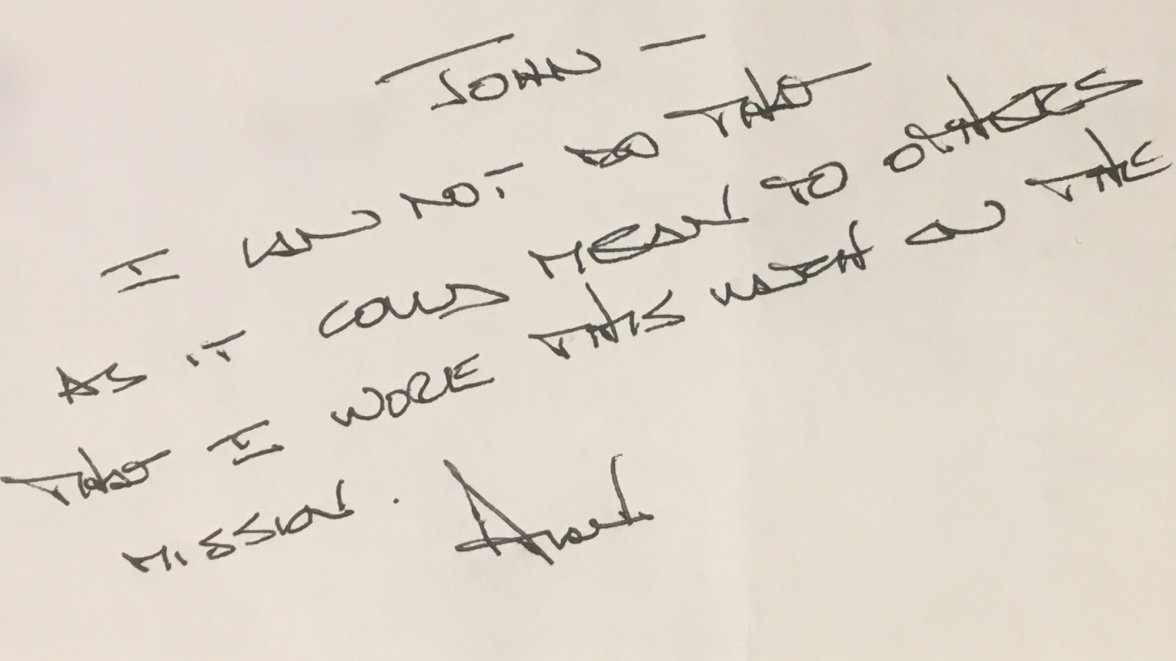 JOHN -
I CAN NOT DO THAT
AS IT COULD MEAN TO OTHERS
THAT I WORE THIS WATCH ON THE
MISSION.